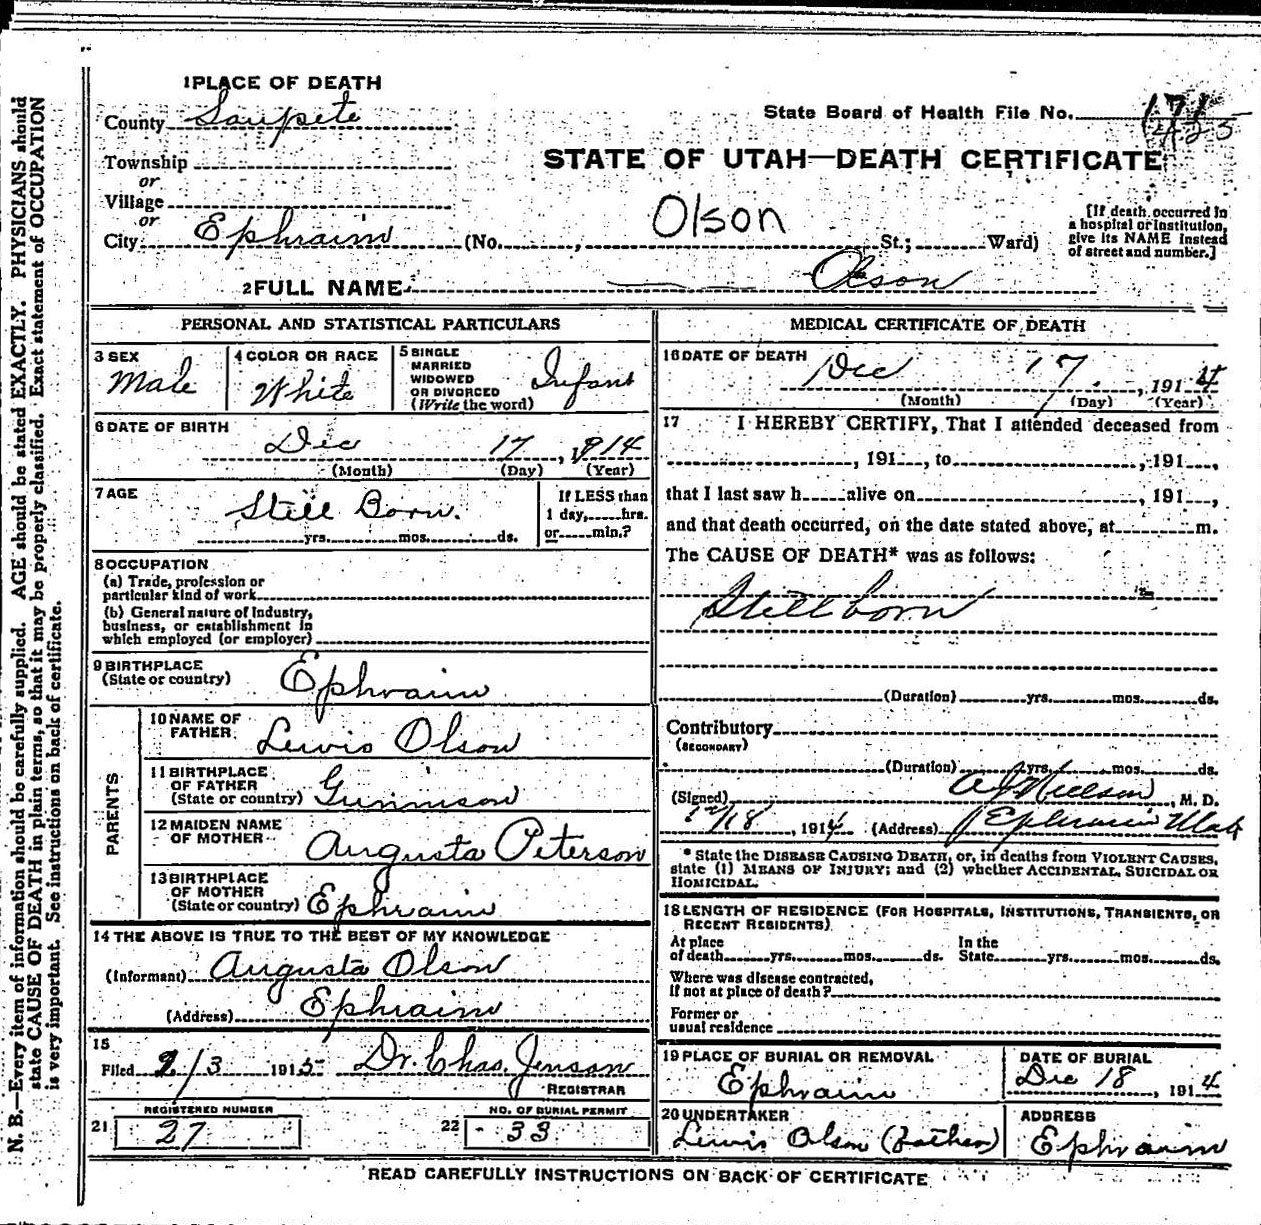 1 PLACE OF DEATH
County Sanpete
State Board of Health File No.
Township
or
Village
or
STATE OF UTAH—DEATH CERTIFICATE
City Ephraim (No. , Olson St.; Ward)
[If death occurred in
a hospital or institution,
give its NAME instead
of street and number.]
2 FULL NAME Olson
PERSONAL AND STATISTICAL PARTICULARS
3 SEX
Male
4 COLOR OR RACE
White
5 SINGLE
MARRIED
WIDOWED
OR DIVORCED
(Write the word)
Infant
6 DATE OF BIRTH
Dec 17, 1914
(Month) (Day) (Year)
7 AGE
Still Born.
yrs. mos. ds.
If LESS than
1 day, hrs.
or min.?
8 OCCUPATION
(a) Trade, profession or
particular kind of work
(b) General nature of Industry,
business, or establishment in
which employed (or employer)
9 BIRTHPLACE
(State or country)
Ephraim
PARENTS
10 NAME OF
FATHER
Lewis Olson
11 BIRTHPLACE
OF FATHER
(State or country)
Gunnison
12 MAIDEN NAME
OF MOTHER
Augusta Peterson
13 BIRTHPLACE
OF MOTHER
(State or country)
Ephraim
14 THE ABOVE IS TRUE TO THE BEST OF MY KNOWLEDGE
(Informant) Augusta Olson
(Address) Ephraim
15
Filed 2/3 1915 Dr. Chas. Jenson
REGISTRAR
REGISTERED NUMBER
21 27
NO. OF BURIAL PERMIT
22 33
MEDICAL CERTIFICATE OF DEATH
16 DATE OF DEATH
Dec 17. , 1914
(Month) (Day) (Year)
17 I HEREBY CERTIFY, That I attended deceased from
, 191 , to , 191 ,
that I last saw h alive on , 191 ,
and that death occurred, on the date stated above, at m.
The CAUSE OF DEATH* was as follows:
Stillborn
(Duration) yrs. mos. ds.
Contributory
(SECONDARY)
(Duration) yrs. mos. ds.
(Signed) A J Nielson, M. D.
12/18, 1914 (Address) Ephraim Utah
* State the DISEASE CAUSING DEATH, or, in deaths from VIOLENT CAUSES,
state (1) MEANS OF INJURY; and (2) whether ACCIDENTAL, SUICIDAL OR
HOMICIDAL.
18 LENGTH OF RESIDENCE (FOR HOSPITALS, INSTITUTIONS, TRANSIENTS, OR
RECENT RESIDENTS)
At place
of death yrs. mos. ds.
In the
State yrs. mos. ds.
Where was disease contracted,
If not at place of death?
Former or
usual residence
19 PLACE OF BURIAL OR REMOVAL
Ephraim
DATE OF BURIAL
Dec 18, 1914
20 UNDERTAKER
Lewis Olson (Father)
ADDRESS
Ephraim
READ CAREFULLY INSTRUCTIONS ON BACK OF CERTIFICATE
N. B.—Every item of information should be carefully supplied. AGE should be stated EXACTLY. PHYSICIANS should
state CAUSE OF DEATH in plain terms, so that it may be properly classified. Exact statement of OCCUPATION
is very important. See instructions on back of certificate.